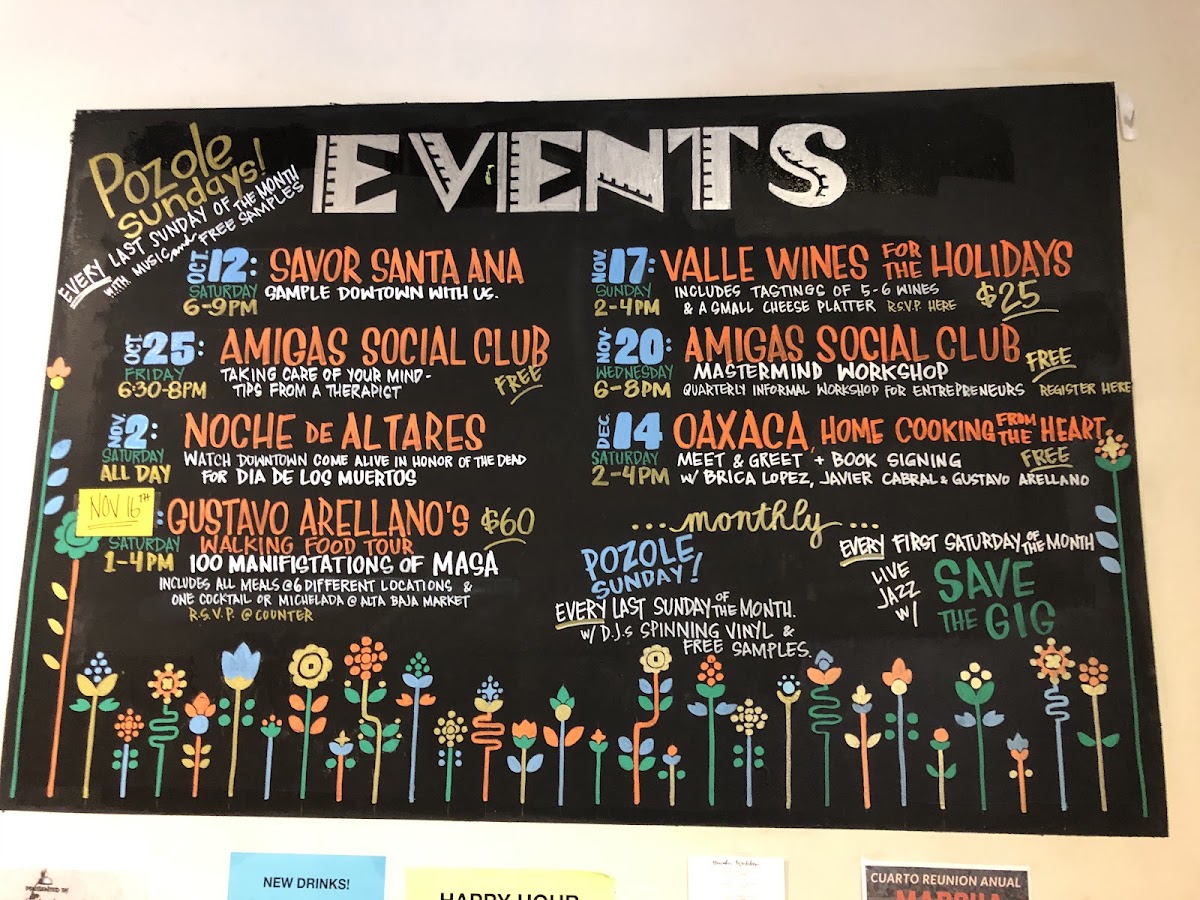 Pozole
Sundays!
EVERY LAST SUNDAY OF THE MONTH
WITH MUSIC and FREE SAMPLES
EVENTS
OCT. 12: SAVOR SANTA ANA
SATURDAY SAMPLE DOWTOWN WITH US.
6-9PM
OCT. 25: AMIGAS SOCIAL CLUB
FRIDAY TAKING CARE OF YOUR MIND- FREE
6:30-8PM TIPS FROM A THERAPIST
NOV. 2: NOCHE DE ALTARES
SATURDAY WATCH DOWNTOWN COME ALIVE IN HONOR OF THE DEAD
ALL DAY FOR DIA DE LOS MUERTOS
NOV 16TH : GUSTAVO ARELLANO'S $60
SATURDAY WALKING FOOD TOUR
1-4PM 100 MANIFISTATIONS OF MASA
INCLUDES ALL MEALS @ 6 DIFFERENT LOCATIONS &
ONE COCKTAIL OR MICHELADA @ ALTA BAJA MARKET
R.S.V.P. @ COUNTER
NOV. 17: VALLE WINES FOR THE HOLIDAYS
SUNDAY INCLUDES TASTINGS OF 5-6 WINES $25
2-4PM & A SMALL CHEESE PLATTER R.S.V.P. HERE
NOV. 20: AMIGAS SOCIAL CLUB FREE
WEDNESDAY MASTERMIND WORKSHOP
6-8PM QUARTERLY INFORMAL WORKSHOP FOR ENTREPRENEURS REGISTER HERE
DEC. 14 OAXACA, HOME COOKING FROM THE HEART
SATURDAY MEET & GREET + BOOK SIGNING FREE
2-4PM W/ BRICA LOPEZ, JAVIER CABRAL & GUSTAVO ARELLANO
...monthly...
POZOLE
SUNDAY!
EVERY LAST SUNDAY OF THE MONTH.
W/ D.J.s SPINNING VINYL &
FREE SAMPLES.
EVERY FIRST SATURDAY OF THE MONTH
LIVE
JAZZ
W/
SAVE
THE GIG
PRESENTED BY
NEW DRINKS!
HAPPY HOUR
CUARTO REUNION ANUAL
MARCHA